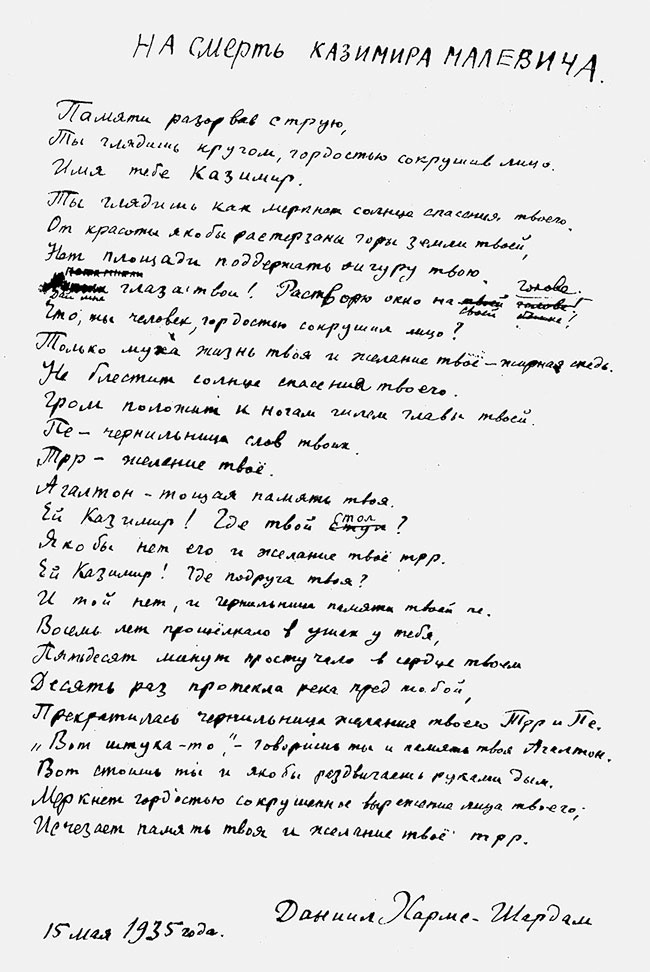 НА СМЕРТЬ КАЗИМИРА МАЛЕВИЧА.
Памяти разорвав струю,
Ты глядишь кругом, гордостью сокрушив лицо.
Имя тебе Казимир.
Ты глядишь как меркнет солнце спасения твоего.
От красоты якобы растерзаны горы земли твоей,
Нет площади поддержать фигуру твою.
Дай мне глаза твои! Растворю окно на своей голове!
Что, ты человек, гордостью сокрушил лицо?
Только муха жизнь твоя и желание твоё – жирная снедь.
Не блестит солнце спасения твоего.
Гром положит к ногам шлем главы твоей.
Пе – чернильница слов твоих.
Трр – желание твоё.
Агалтон – тощая память твоя.
Ей Казимир! Где твой стол?
Якобы нет его и желание твоё трр.
Ей Казимир! Где подруга твоя?
И той нет, и чернильница памяти твоей пе.
Восемь лет прощёлкало в ушах у тебя,
Пятьдесят минут простучало в сердце твоем
Десять раз протекла река пред тобой,
Прекратилась чернильница желания твоего Трр и Пе.
„Вот штука-то," – говоришь ты и память твоя Агалтон.
Вот стоишь ты и якобы раздвигаешь руками дым.
Меркнет гордостью сокрушенное выражение лица твоего;
Исчезает память твоя и желание твоё трр.
Даниил Хармс – Шардам
15 мая 1935 года.